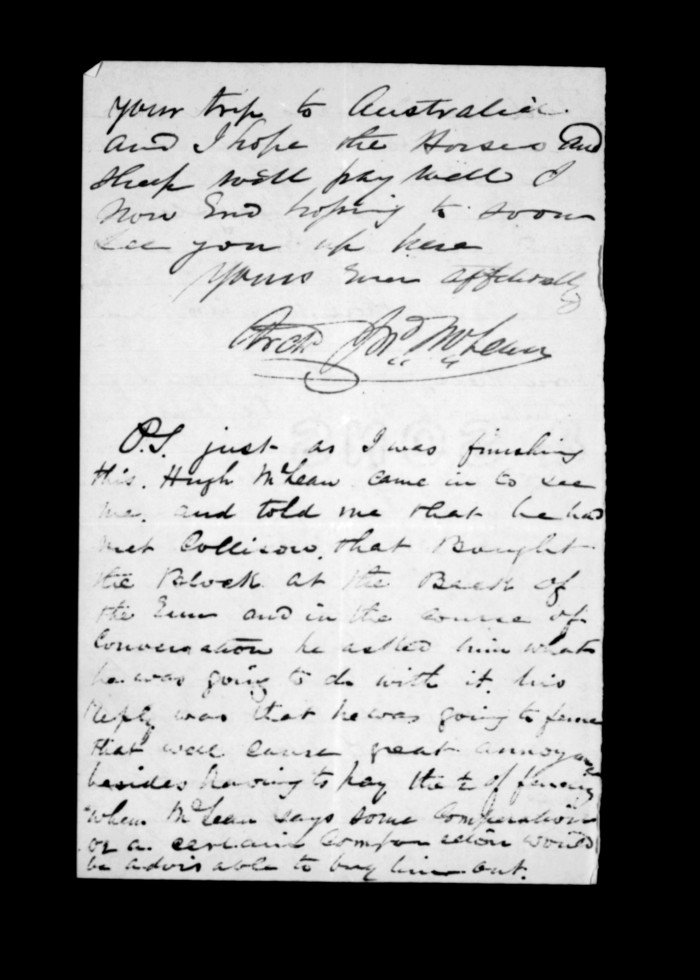 your trip to Australia
and I hope the Horses and
sheep will pay well I
now End hoping to soon
see you up here
Yours Ever affectly
Archd Jno McLean
P.S. just as I was finishing
this. Hugh McLean came in to see
me. and told me that he had
met Collison, that Bought
the Block at the Back of
the and in the course of
Conversation he asked him what
he was going to do with it. his
Reply was that he was going to fence
that will cause great annoyance
besides having to pay the ½ of fencing
when McLean says some
or a certain would
be advisable to buy him out.